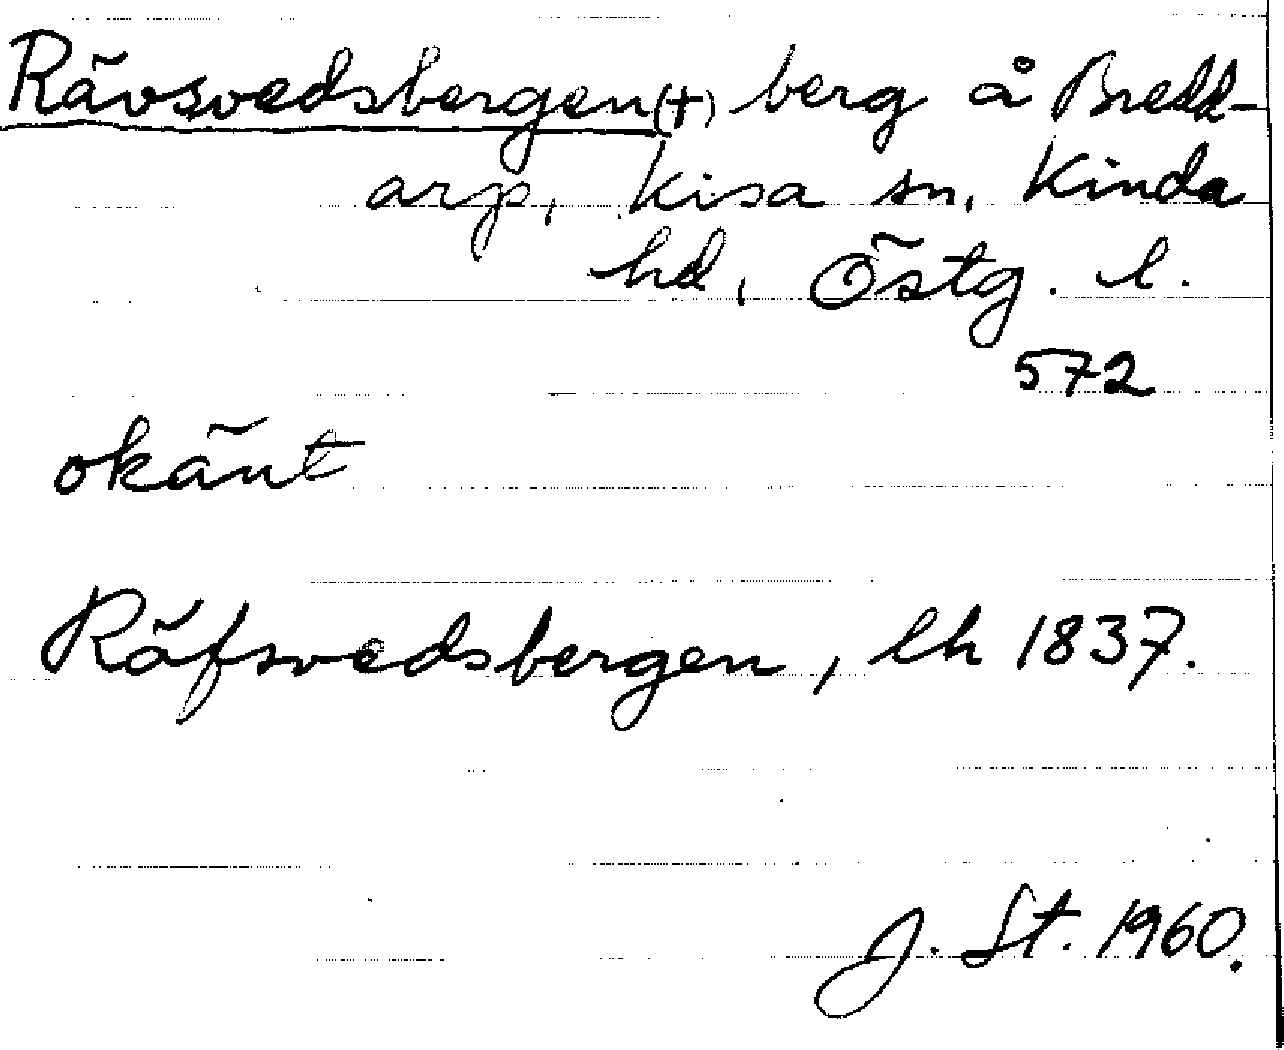 Rävsvedsbergen(+) berg å Bredd-
arp, Kisa sn, Kinda
hd, Östg. l.
572
okänt
Räfsvedsbergen, lh 1837.
J. St. 1960.